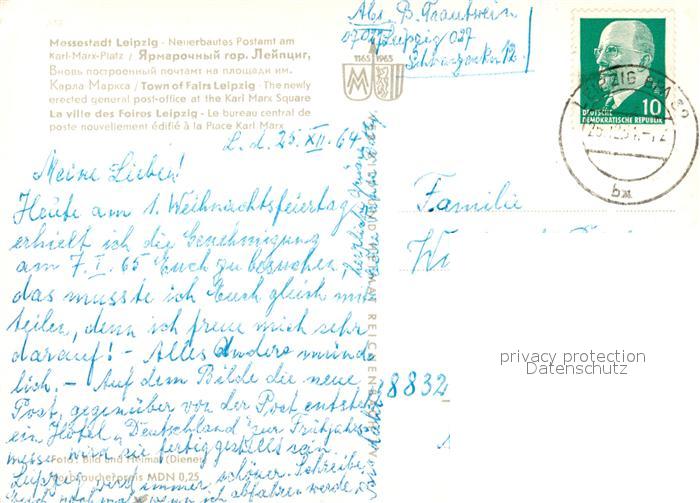 Messestadt Leipzig - Neuerbautes Postamt am
Karl-Marx-Platz / Ярмарочный гор. Лейпциг,
Вновь построенный почтамт на площади им.
Карла Маркса / Town of Fairs Leipzig - The newly
erected general post-office at the Karl Marx Square
La ville des Foiros Leipzig - Le bureau central de
poste nouvellement édifié à la Place Karl-Marx
1165 1965
M
Abs. B. Trautwein
Leipzig 027
12
L. d. 25. XII. 64
Meine Lieben!
Heute am 1. Weihnachtsfeiertag
erhielt ich die Genehmigung
am 7. I. 65 Euch zu besuchen,
das musste ich Euch gleich mit
teilen, denn ich freue mich sehr
darauf! - Alles Andere münd
lich. - Auf dem Bilde die neue
Post, gegenüber von der Post entsteht
ein Hotel „Deutschland" zur Frühjahrs-
messe wird sie fertiggestellt sein.
Leipzig wird immer schöner. Schreibe
Euch noch mal wenn ich abfahren werde.
herzliche Grüsse
Foto: Bild und Heimat (Diener)
Verbraucherpreis MDN 0,25
BILD UND HEIMAT REICHENBACH
Familie
8832
DEUTSCHE
DEMOKRATISCHE REPUBLIK
10
LEIPZIG
bx
privacy protection
Datenschutz